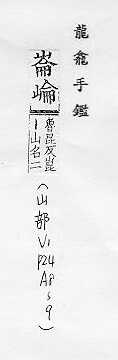 龍龕手鑑
崙崘
魯昆反崑
丨山名二
(山部V1
P24
A8
S9)